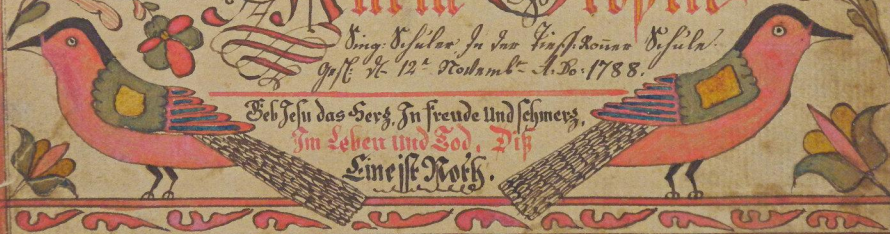 Sing-Schüler In der Tieff-Ronner Schule.
Gesch: d. 12ᵗ Novembr A. Do: 1788.
Geb Jesu das Hertz, In freude Und schmertz,
Im Leben und Tod, Diß
Eine ist Noth.